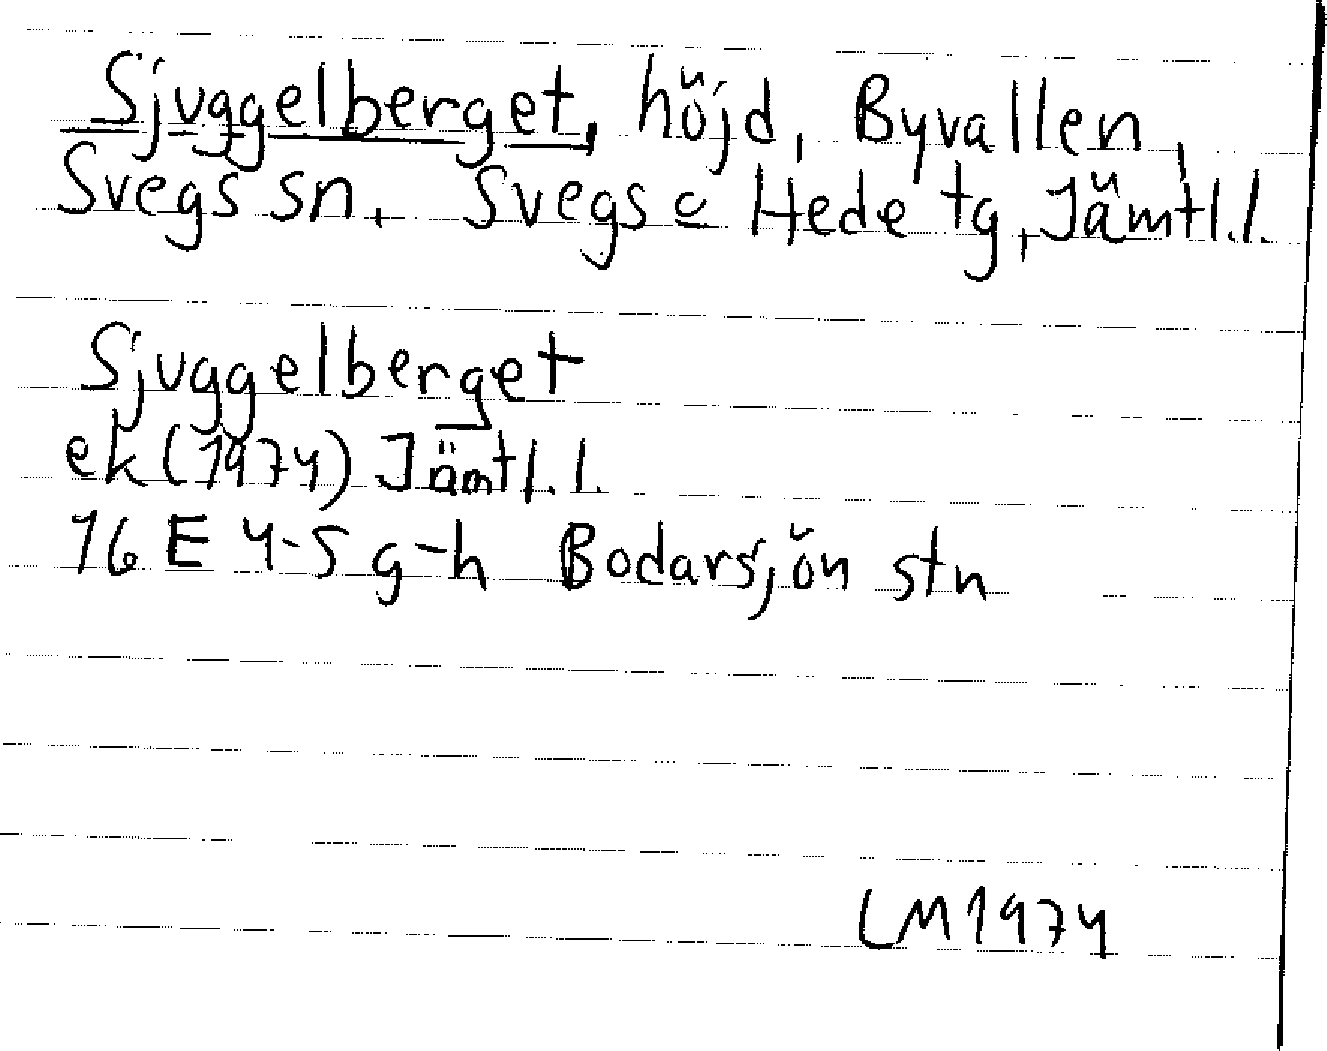 Sjuggelberget, höjd, Byvallen,
Svegs sn, Svegs o Hede tg, Jämtl.l.
Sjuggelberget
ek (1974) Jämtl.l.
16 E 4-5 g-h Bodarsjön stn
LM 1974